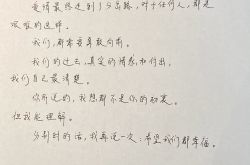 爱情最终走到了岔路，对于任何人，都是
艰难的选择。
我们，都需要勇敢向前。
我们的过去，真实的情感和付出，
我们自己最清楚。
你所说的，我想都不是你的初衷。
但我能理解。
分别时的话，我再说一次：希望我们都幸福。